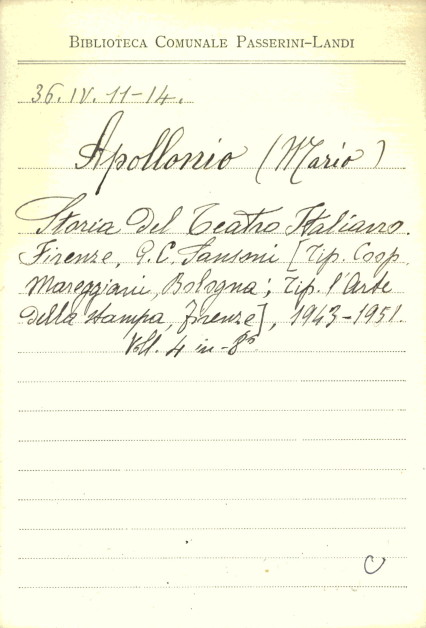 BIBLIOTECA COMUNALE PASSERINI-LANDI
36. IV. 11-14.
Apollonio (Mario)
Storia del Teatro Italiano.
Firenze, G. C. Sansoni [Tip. Coop.
Mareggiani, Bologna; Tip. l'Arte
della stampa, Firenze], 1943-1951.
Voll. 4 in-8º
C